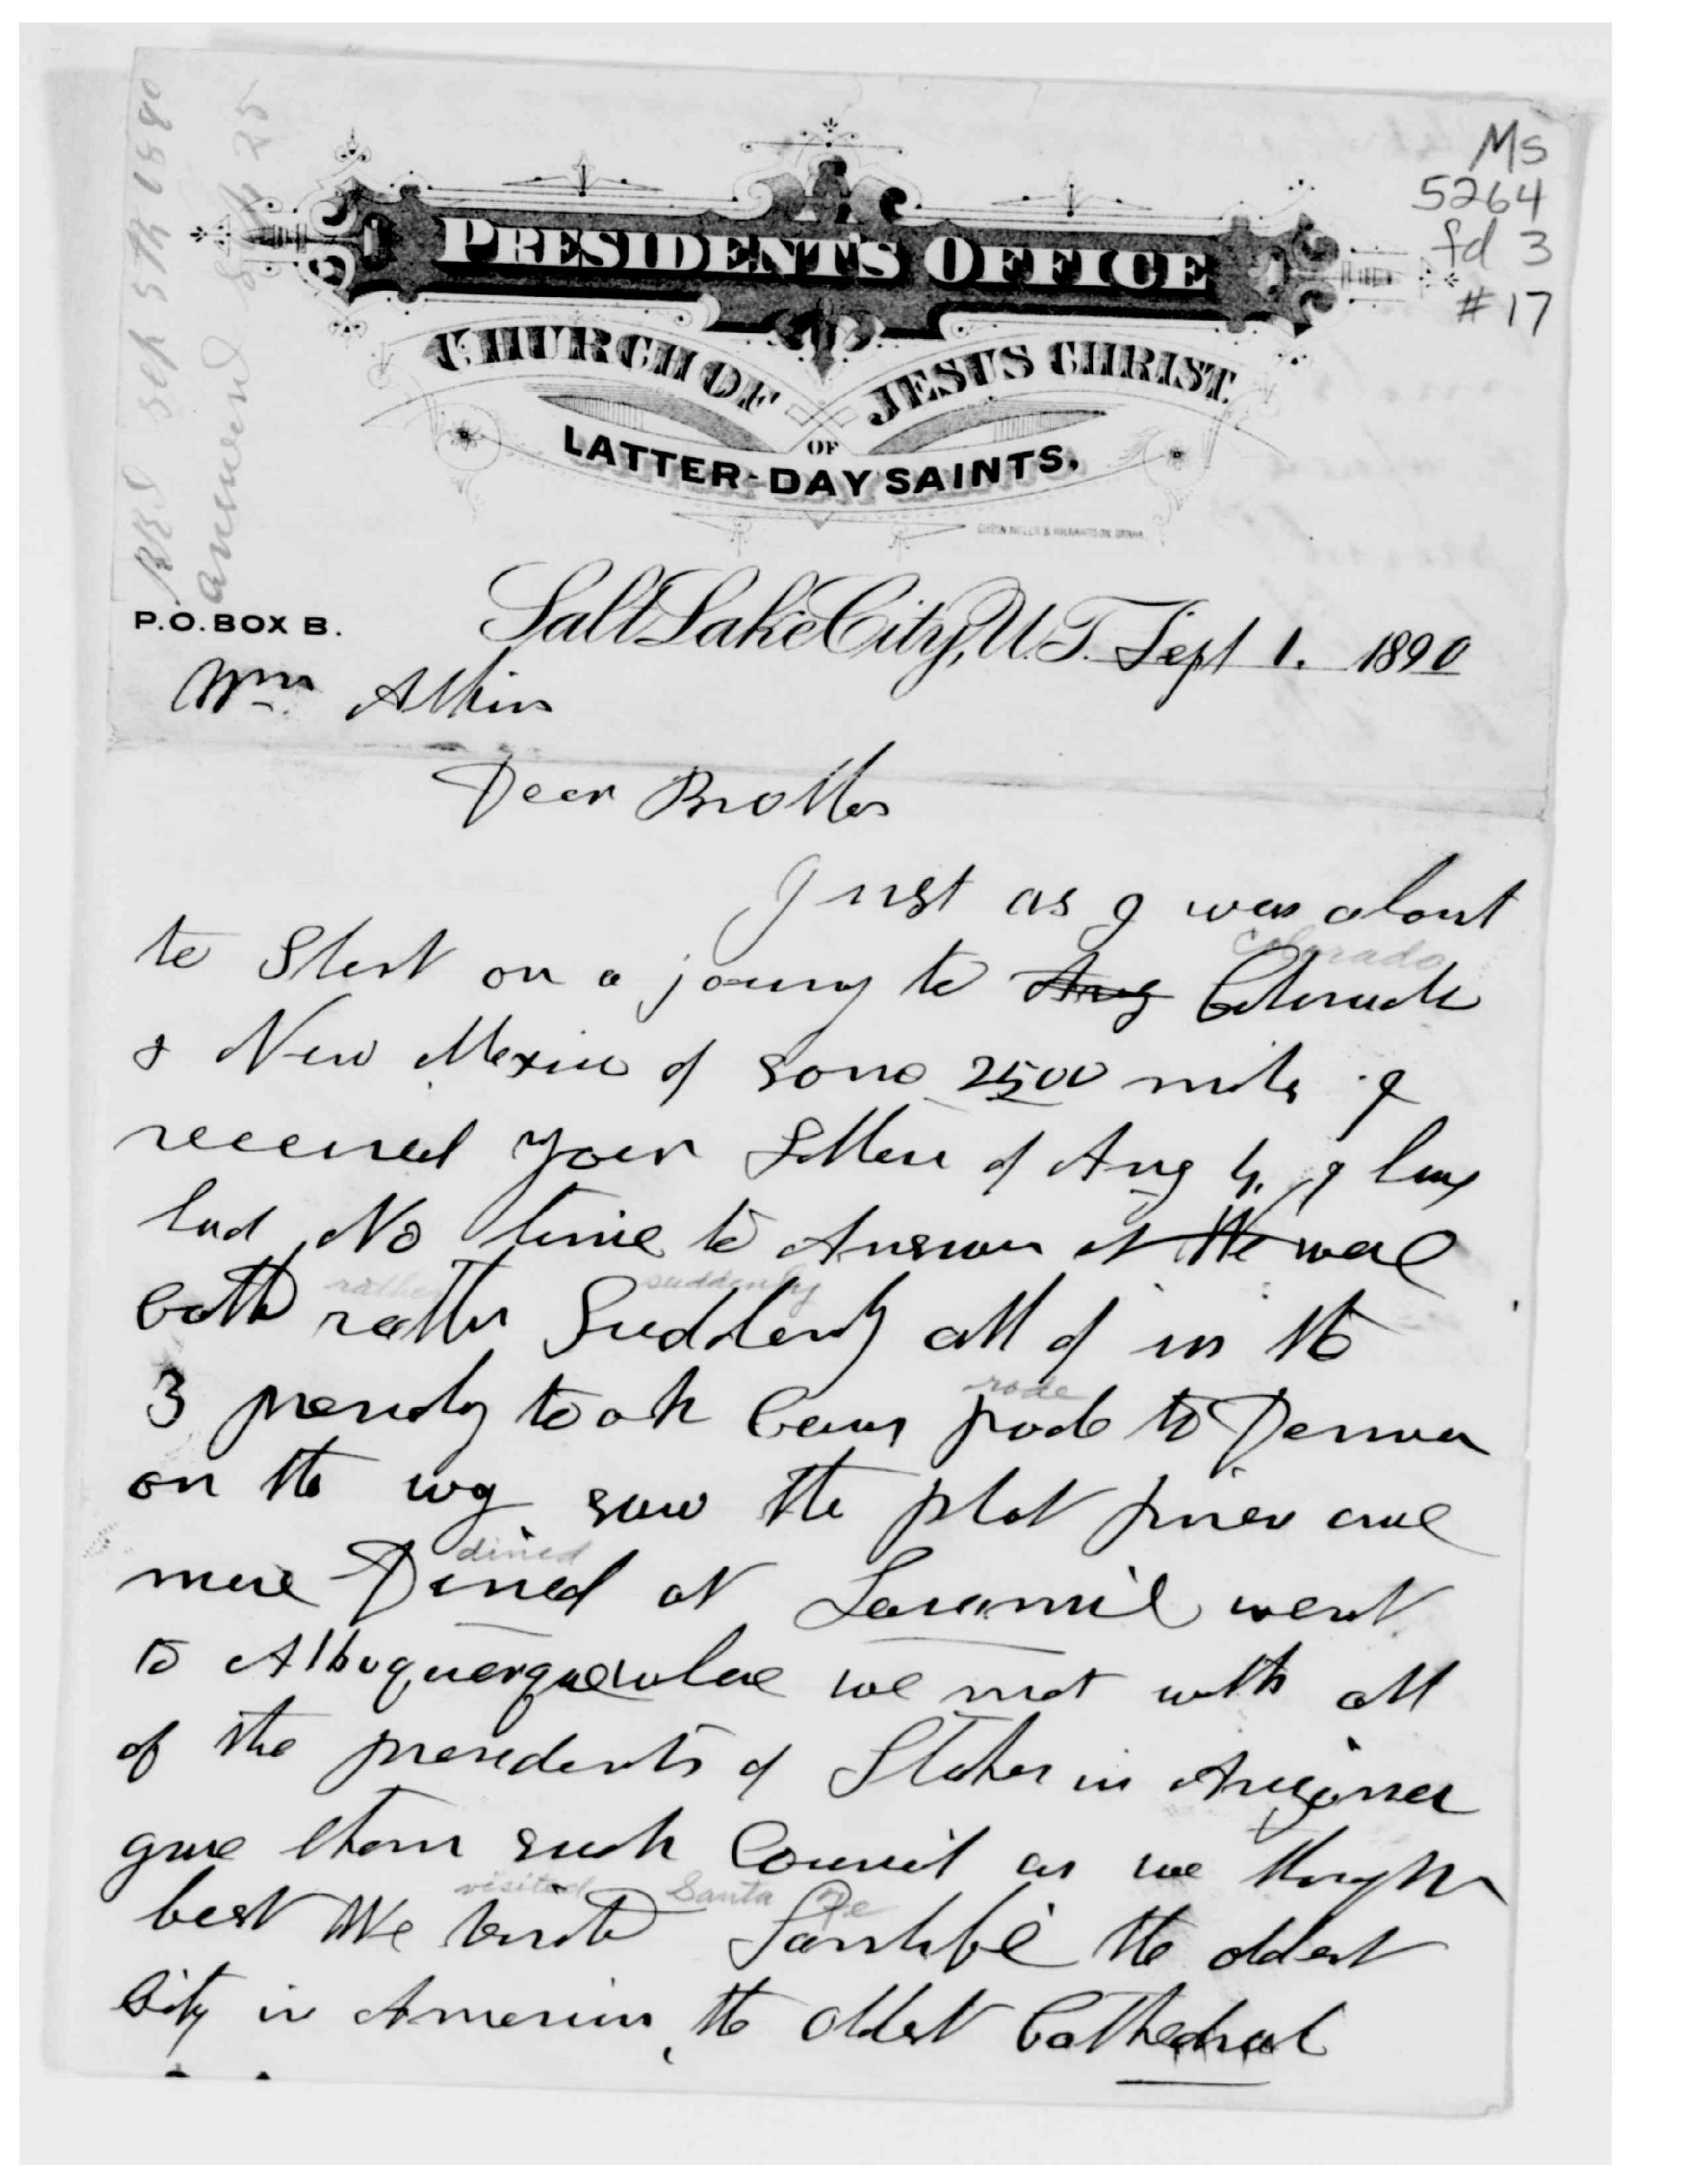 Ms
5264
fd 3
#17
Rec sep 5th 1890
answered Sep 25
PRESIDENT'S OFFICE
CHURCH OF JESUS CHRIST
OF
LATTER-DAY SAINTS.
P.O. BOX B.
Salt Lake City, U.T. Sept 1. 1890
Wm Atkin
Dear Brother
Just as I was about
Colorado
to Start on a journy to Aug Colorado
& New Mexico of some 2500 miles I
received your Letter of Aug 4. I have
had No time to Answer it We were
rather suddenly
both rather Suddenly all of us the
rode
3 presidency took cars rode to Denver
on the way saw the plat
dined
more Dined at Laramie went
to Albuquerque whare we met with all
of the presidents of Stakes in Arizona
gave them such Council as we thought
visited Santa Fe
best We visited Santafee the oldest
City in America, the oldest Cathedral